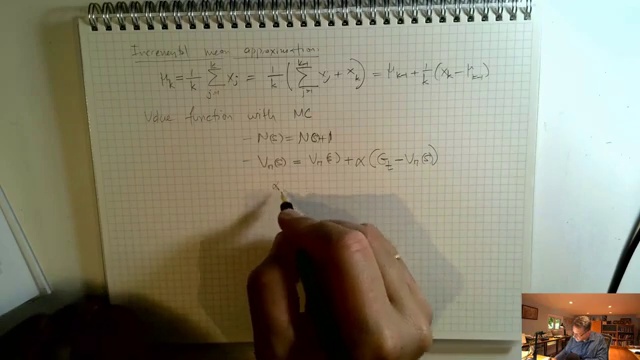 Incremental mean approximation:
μ_k = 1/k ∑_{j=1}^{k} x_j = 1/k ( ∑_{j=1}^{k-1} x_j + x_k ) = μ_{k-1} + 1/k (x_k − μ_{k-1})
Value function with MC
- N(s) = N(s)+1
- V_π(s) = V_π(s) + α (G_t − V_π(s))
α